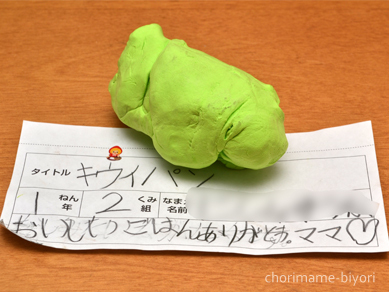 タイトル キウイパン
1 ねん 年 2 くみ 組 なまえ 名前
おいしいごはんありがとう。ママ♡
chorimame-biyori